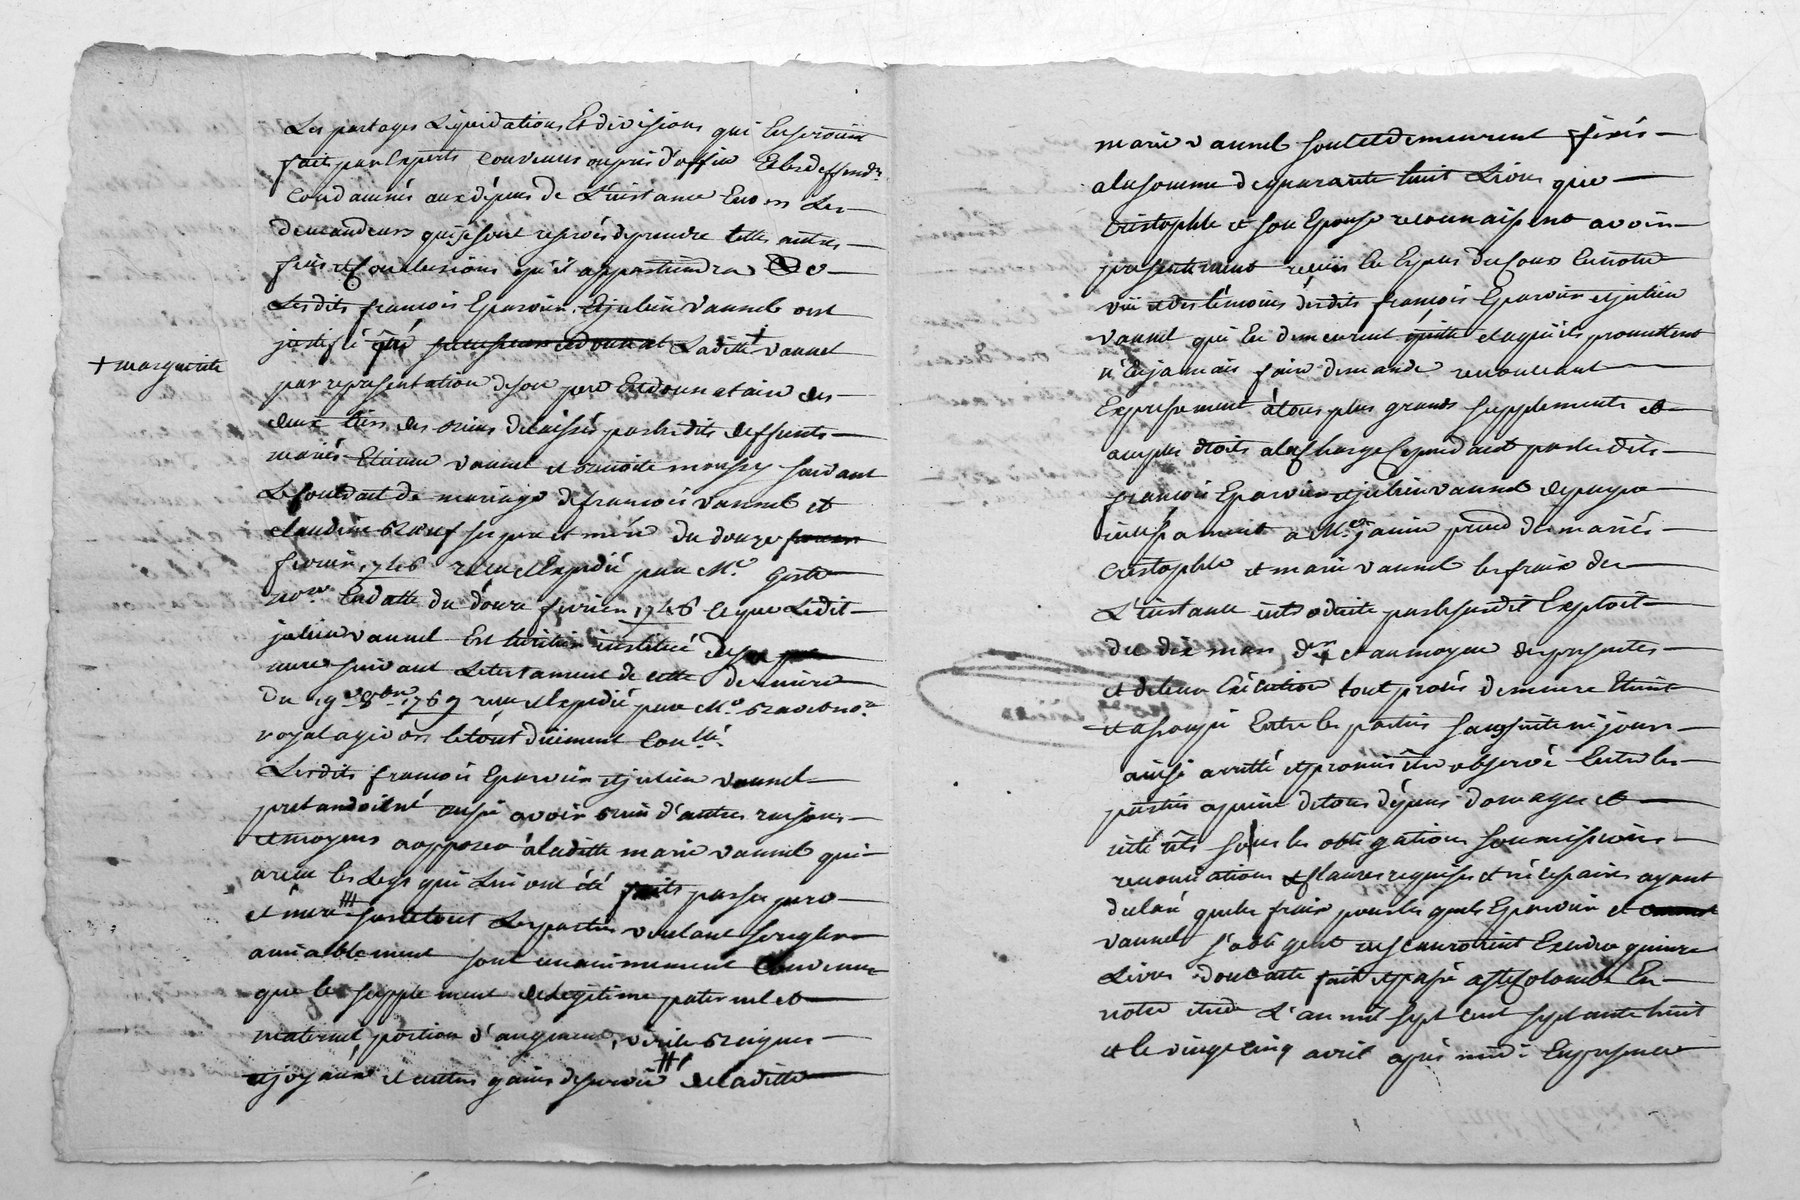 Les partages Liquidations Et divisions qui En seroient
fait par Experts convenus ou pris d'office Et les deffendrs
Condamnés aux dépens de L'instance Envers Les
demandeurs qui se sont reservés de prendre telles autres
fins et Conclusions qu'il appartiendra
Lesdits françois Eparvier et julien Vannel ont
justifié que Laditte + vannel
+ marguerite
par representation de son pere Est donnetaire des
deux tiers des biens delaissés par lesdits deffunts
mariés Etienne vannel et benoite moussy suivant
Le Contrat de mariage de françois vannel et
claudine ses pere et mere du douze
fevrier 1746 recu et Expedié par Me
nore En datte du douze fevrier 1746 et que Ledit
julien vannel Est heritier institué de sa
mere suivant Le testament de cette derniere
du 19e 8bre 1769 recu et Expedié par Me nore
royal a le tout duement Conllé
Lesdits françois Eparvier et julien vannel
pretandoient aussi avoir bien d'autres raisons
et moyens a opposer à laditte marie vannel qui
a recu les Legs qui Lui ont été faits par ses pere
et mere # sur le tout Les parties voulant se regler
amiablement sont unanimement Convenus
que le supplement de Legitime paternel et
maternel portion d'augment, virile bagues
et joyaux et autres gains de survie # de laditte
marie vannel sont et demeurent fixés
a la somme de quarante huit Livres que
Cristophle et son Epouse reconnaissent avoir
presentement recuis En Espes du Cours En notre
vüe et des témoins desdits françois Eparvier et julien
vannel qui En demeurent quitte et a qui ils promettent
n'En jamais faire demande renoncant
Expressement à tous plus grands supplements et
amples droits a la Charge Cependant par lesdits
françois Eparvier et julien vannel de payer
incessament a Me janin procd des mariés
Cristophle et marie vannel les frais de
L'instance introduite par le susdit Exploit
du dix mars der et au moyen des presentes
et de leur Execution tout procés demeure Eteint
et assoupi Entre les parties sans suite ni jours
ainsi arretté et promis être observé Entre les
parties a peine de tous dépens domages et
intérêts sous les obligations soumissions
renonciations et Clauses requises et nécessaires ayant
declaré que les frais pour les quels Eparvier et
vannel s'obligent ne scauroient Exceder quinze
Livres dont acte fait et passé a Ste Colombe En
notre etude L'an mil sept cent septante huit
et le vingt cinq avril après midi En presence